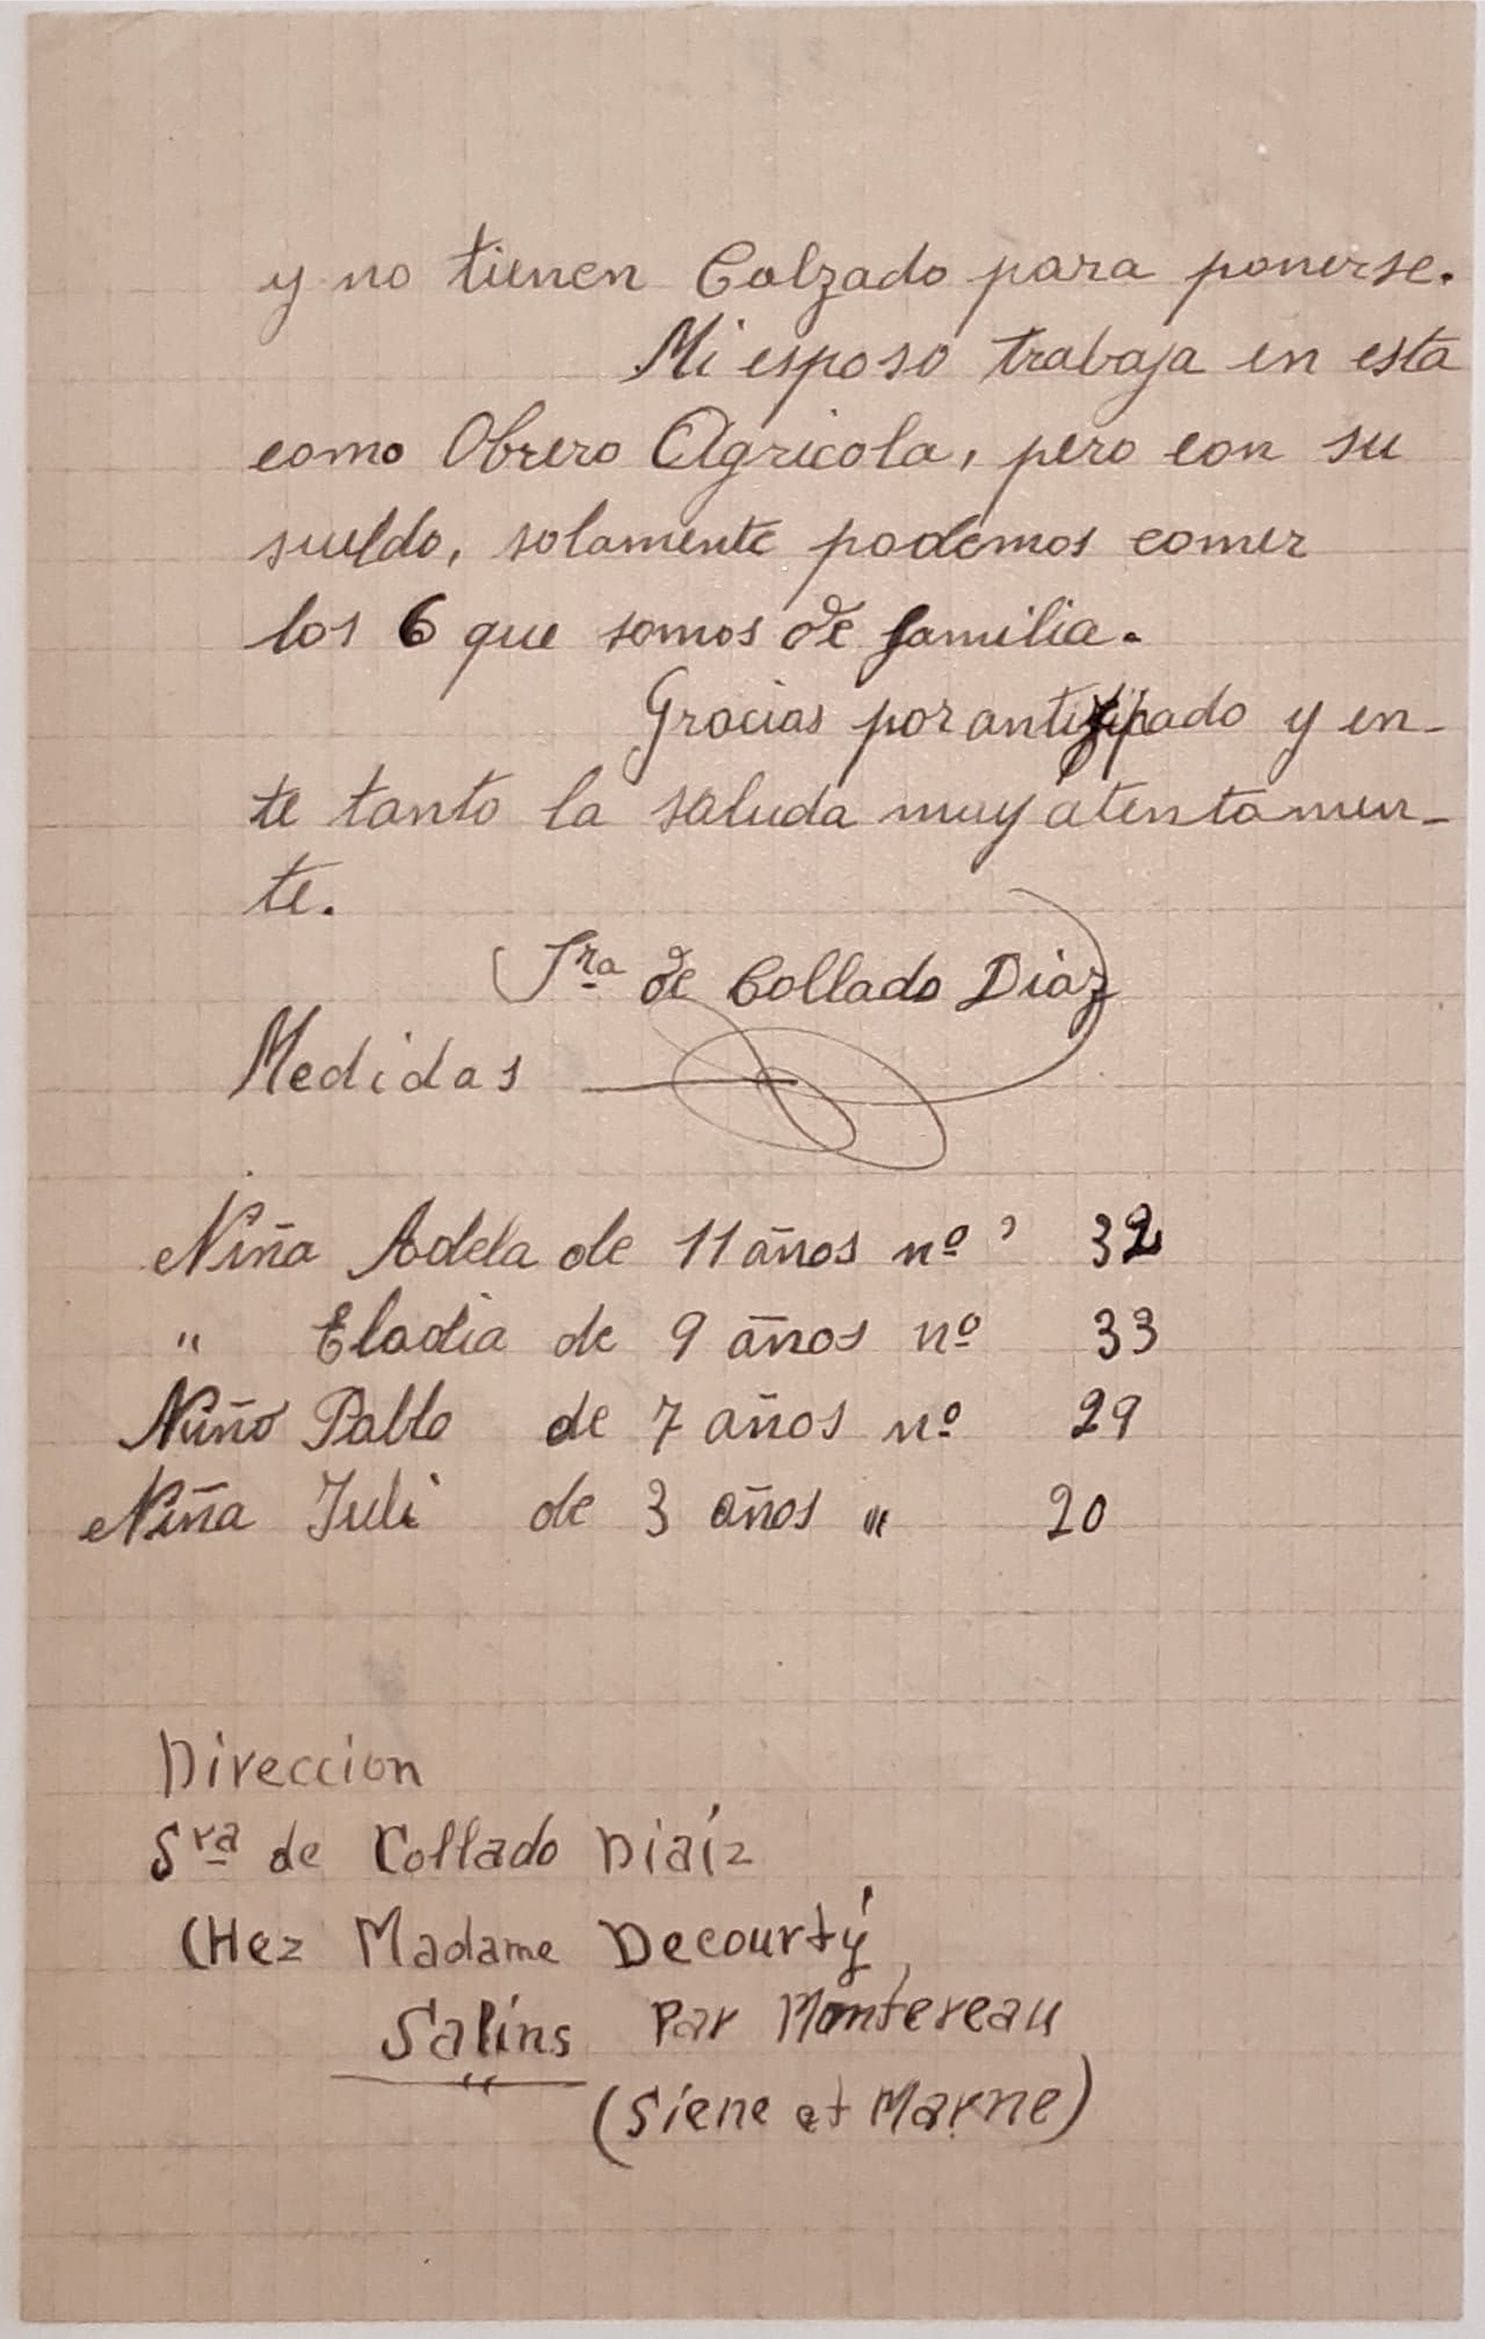 y no tienen Calzado para ponerse.
Mi esposo trabaja en esta
como Obrero Agricola, pero con su
sueldo, solamente podemos comer
los 6 que somos de familia.
Gracias por antizipado y en-
te tanto la saluda muy atentamen-
te.
Sra de Collado Diaz
Medidas
Niña Adela de 11 años nº 32
" Eladia de 9 años nº 33
Niño Pablo de 7 años nº 29
Niña Juli de 3 años " 20
Direccion
Sra de Collado Diaíz
CHez Madame Decourtý
Salins Par Montereau
(Siene et Marne)